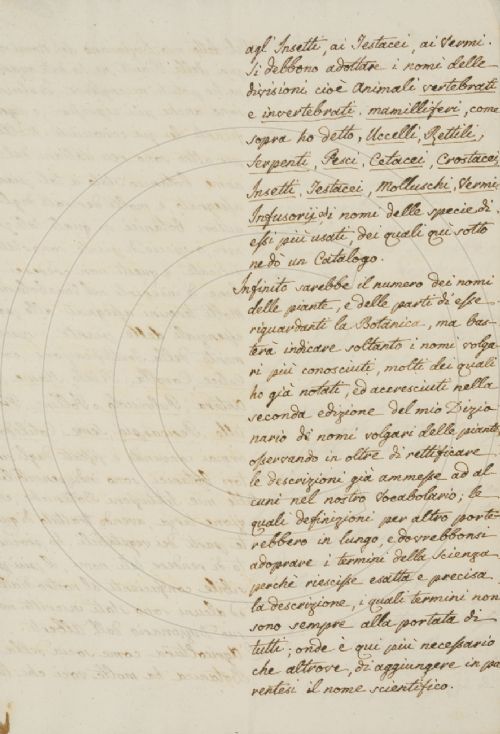 agl' Insetti, ai Testacei, ai Vermi.
Si debbono adottare i nomi delle
divisioni cioè Animali vertebrati
e invertebrati. mamilliferi, come
sopra ho detto, Uccelli, Rettili,
Serpenti, Pesci, Cetacei, Crostacei,
Insetti, Testacei, Molluschi, Vermi,
Infusorij di nomi delle specie di
essi più usati, dei quali qui sotto
ne dò un Catalogo.
Infinito sarebbe il numero dei nomi
delle piante, e delle parti di esse
riguardanti la Botanica, ma bas-
terà indicare soltanto i nomi volga
ri più conosciuti, molti dei quali
ho già notati, ed accresciuti nella
seconda edizione del mio Dizio
nario di nomi volgari delle piante,
osservando in oltre di rettificare
le descrizioni già ammesse ad al
cuni nel nostro Vocabolario; le
quali definizioni per altro porte
rebbero in lungo, e dovrebbonsi
adoprare i termini della Scienza
perchè riescisse esatta e precisa
la descrizione, i quali termini non
sono sempre alla portata di
tutti; onde è qui più necessario
che altrove, di aggiungere in pa
rentesi il nome scientifico.